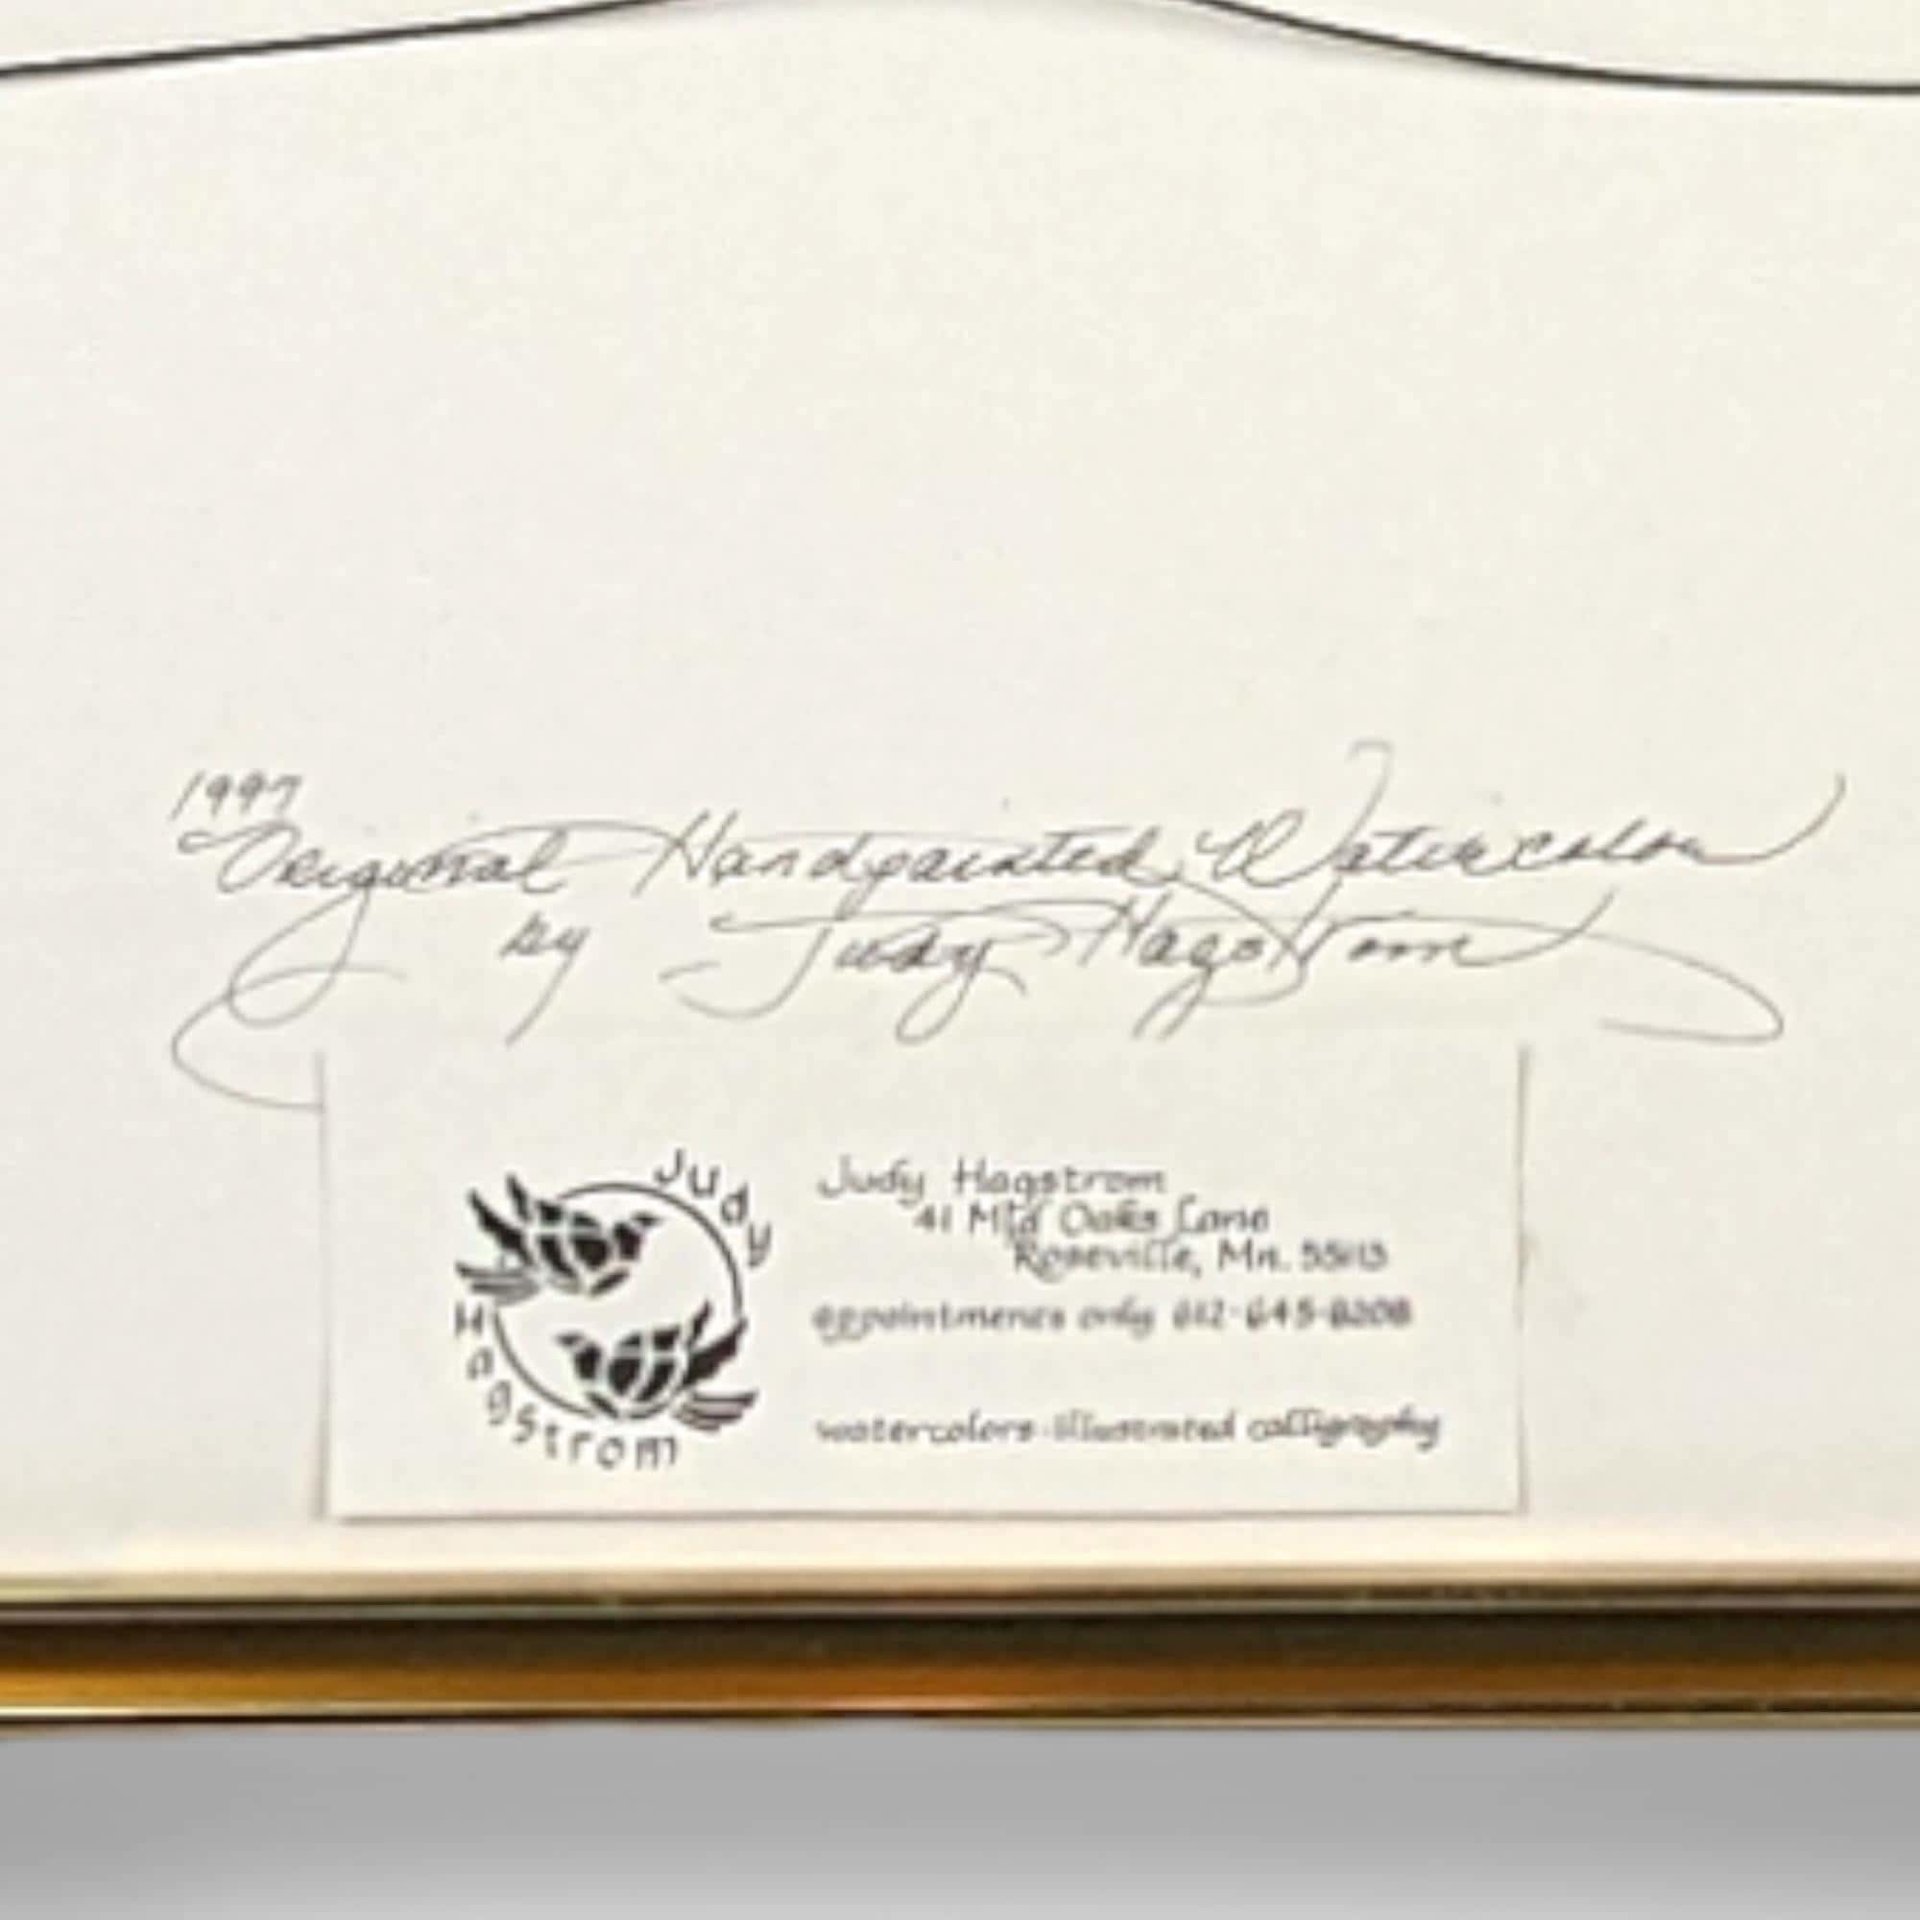 1997
Original Handpainted Watercolor
by Judy Hagstrom
Judy
Hagstrom
Judy Hagstrom
41 Mid Oaks Lane
Roseville, Mn. 55113
appointments only 612-645-8208
watercolors-illustrated calligraphy